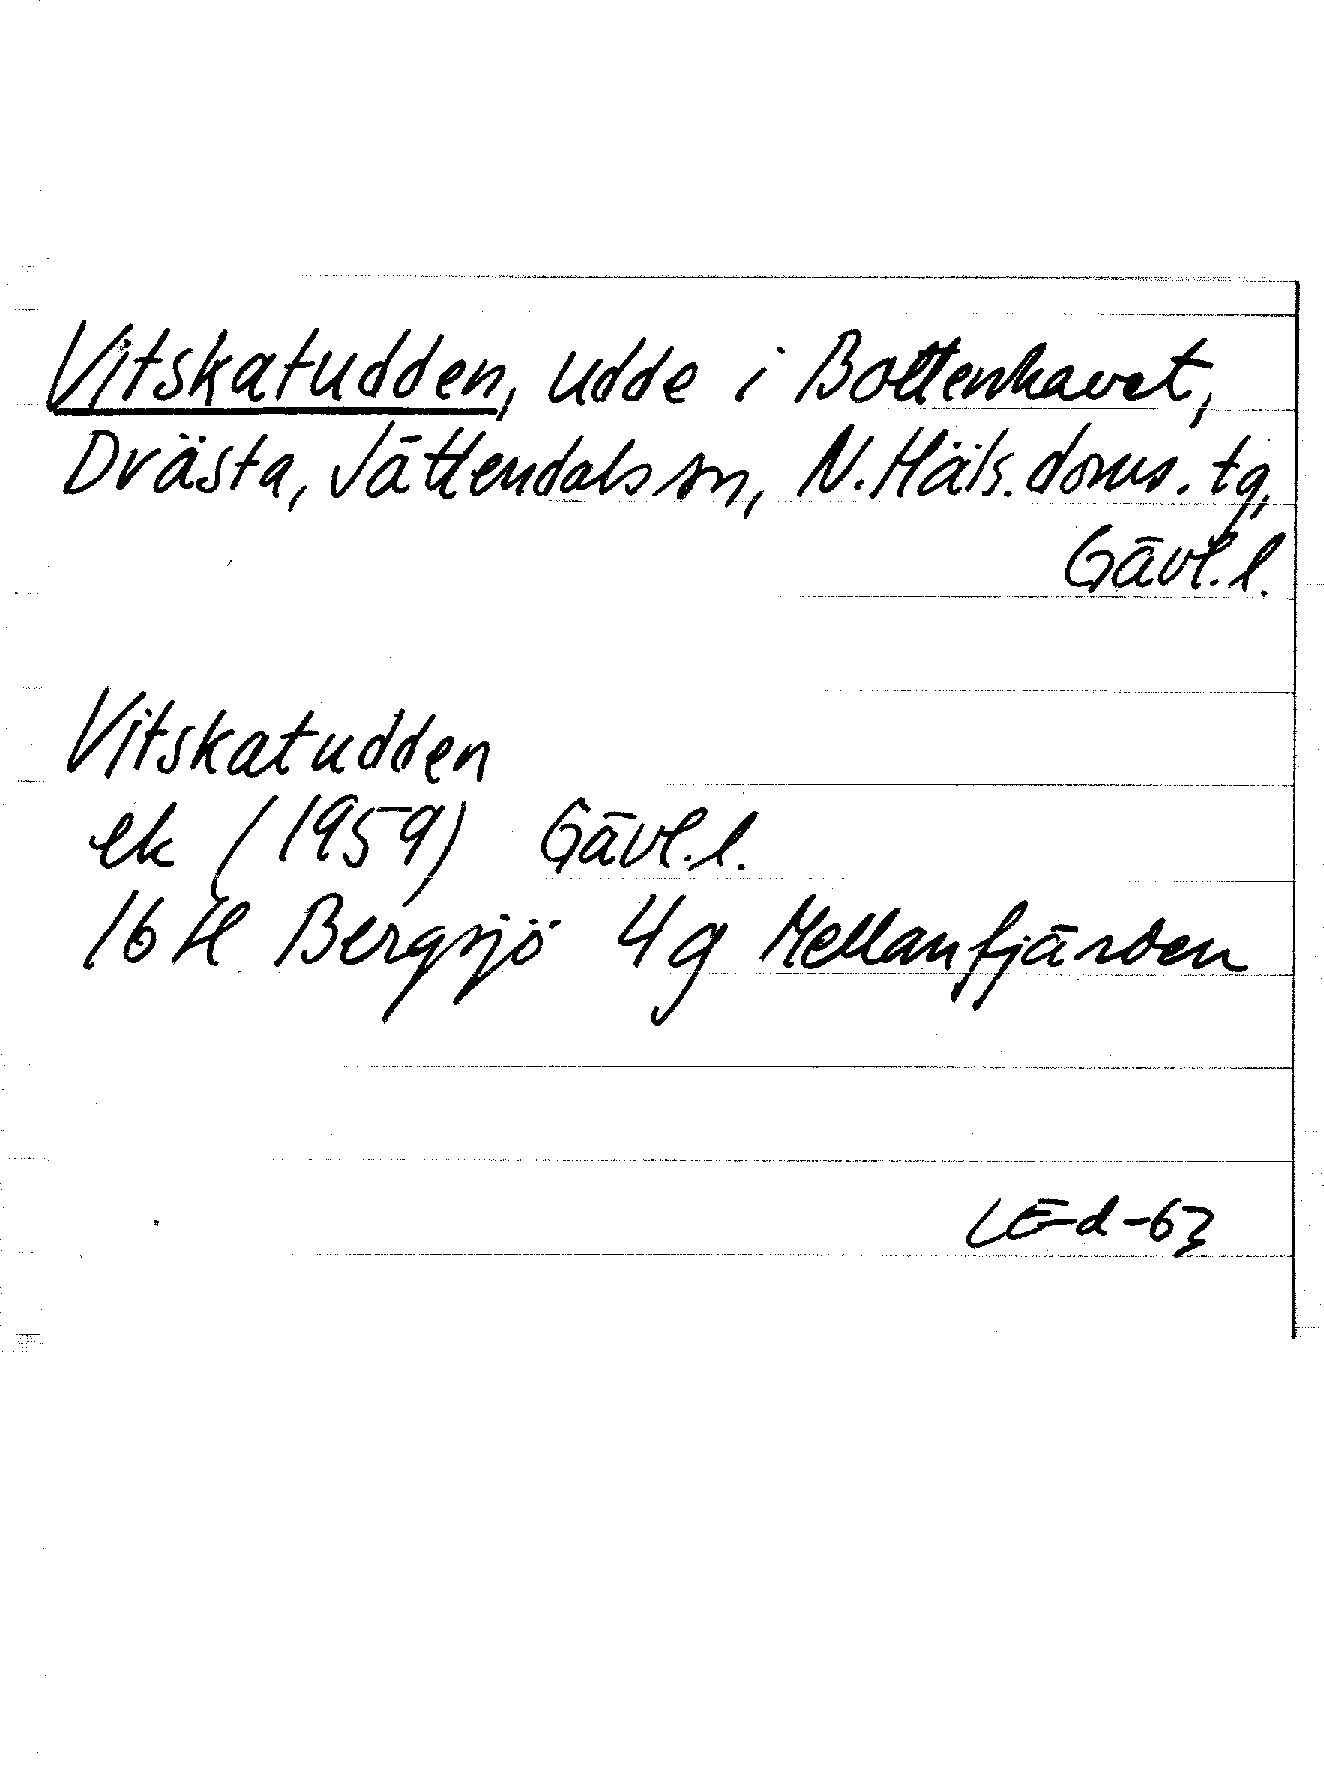 Vitskatudden, udde i Bottenhavet,
Drästa, Jättendals sn, N. Häls. doms. tg,
Gävl. l.
Vitskatudden
ek (1959) Gävl. l.
16 H Bergsjö 4g Mellanfjärden
LE-d-63